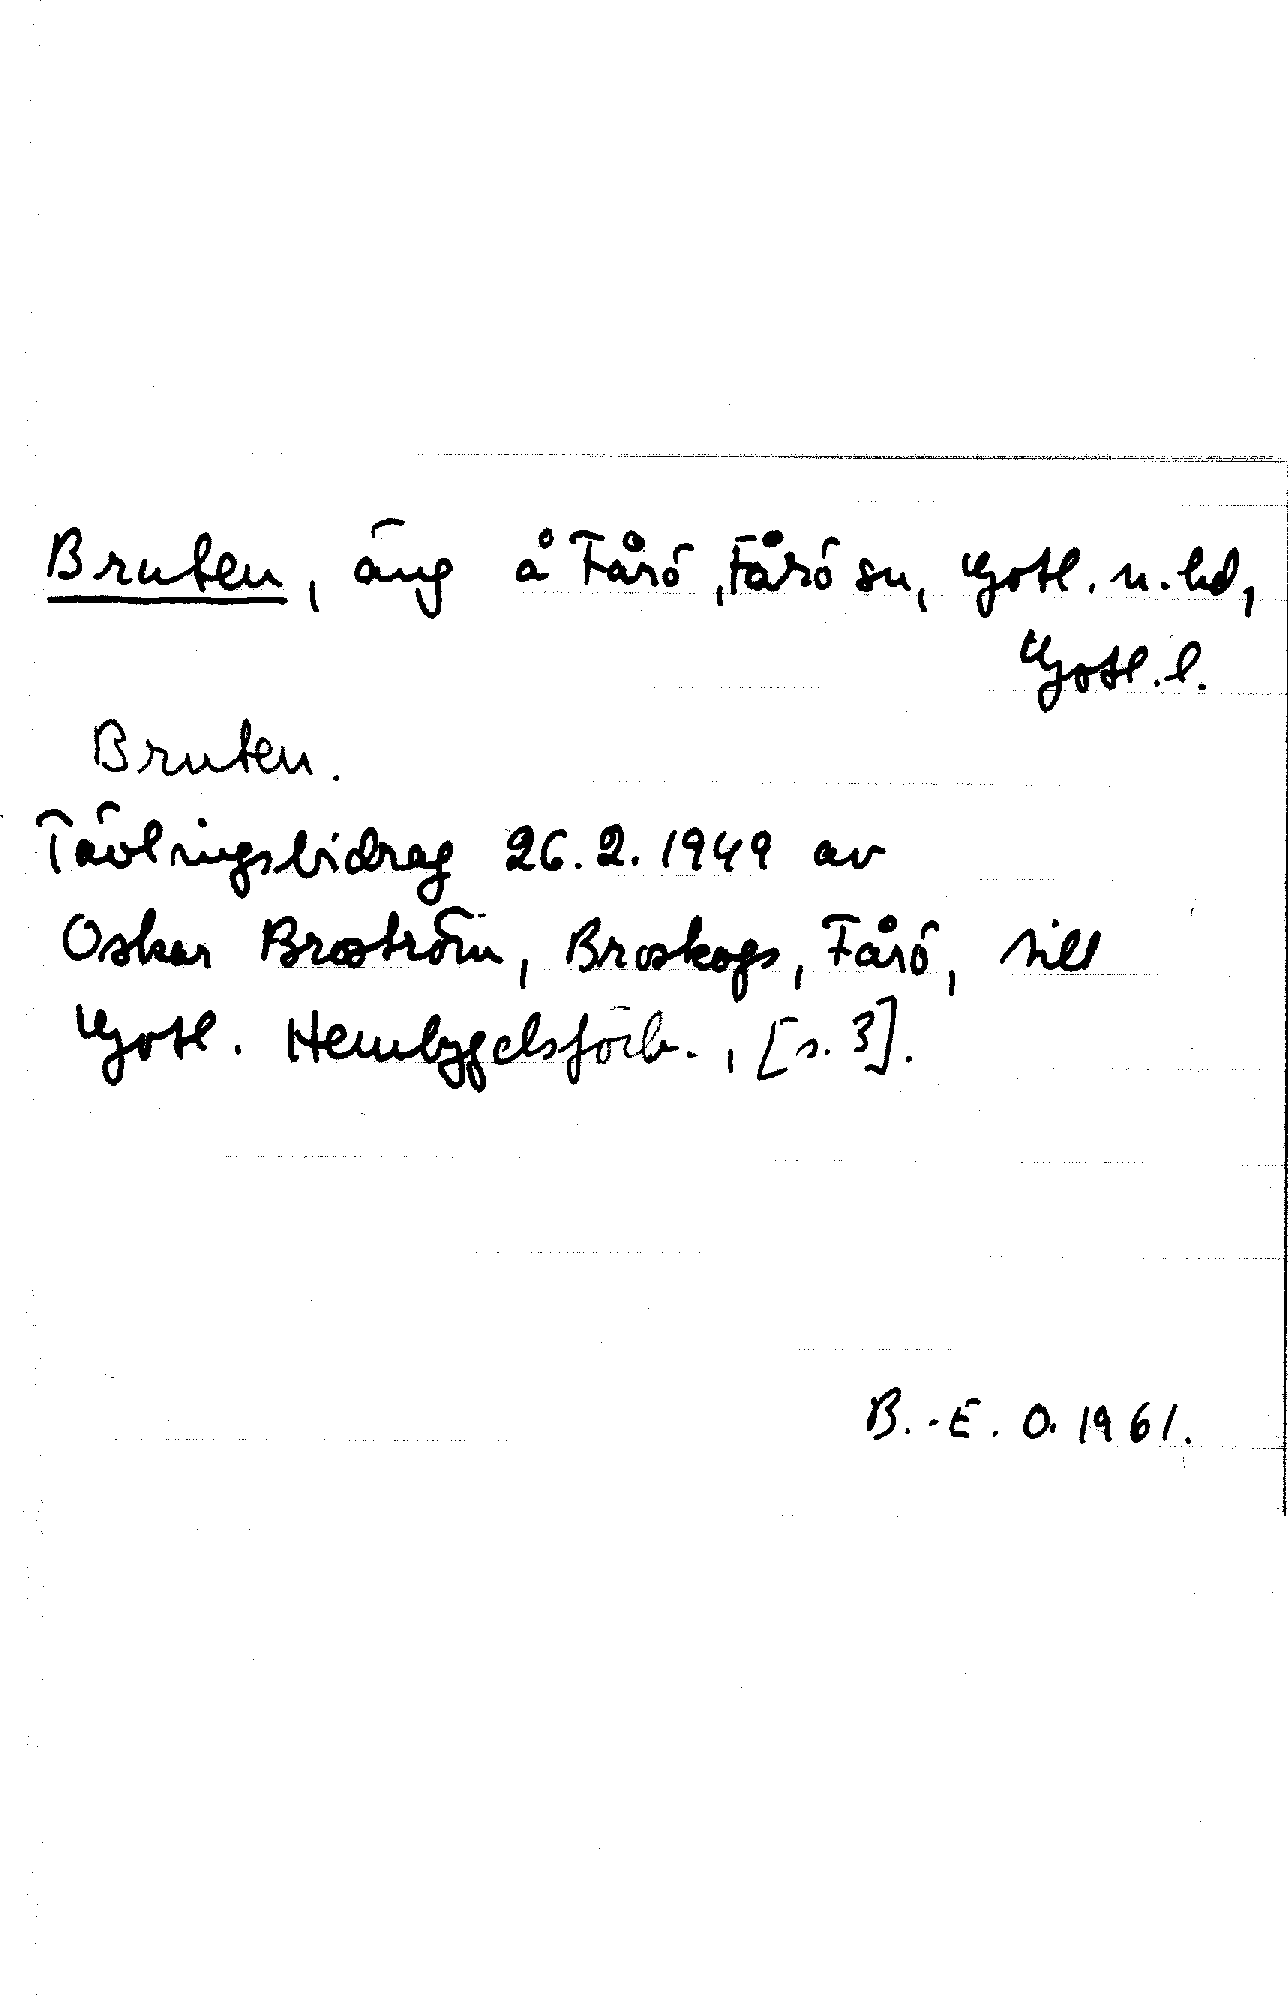 Bruten, äng å Fårö, Fårö sn, Gotl. n. hd,
Gotl. l.
Bruten.
Tävlingsbidrag 26.2.1949 av
Oskar Broström, Broskogs, Fårö, till
Gotl. Hembygdsförb., [s. 3].
B.-E. O. 1961.